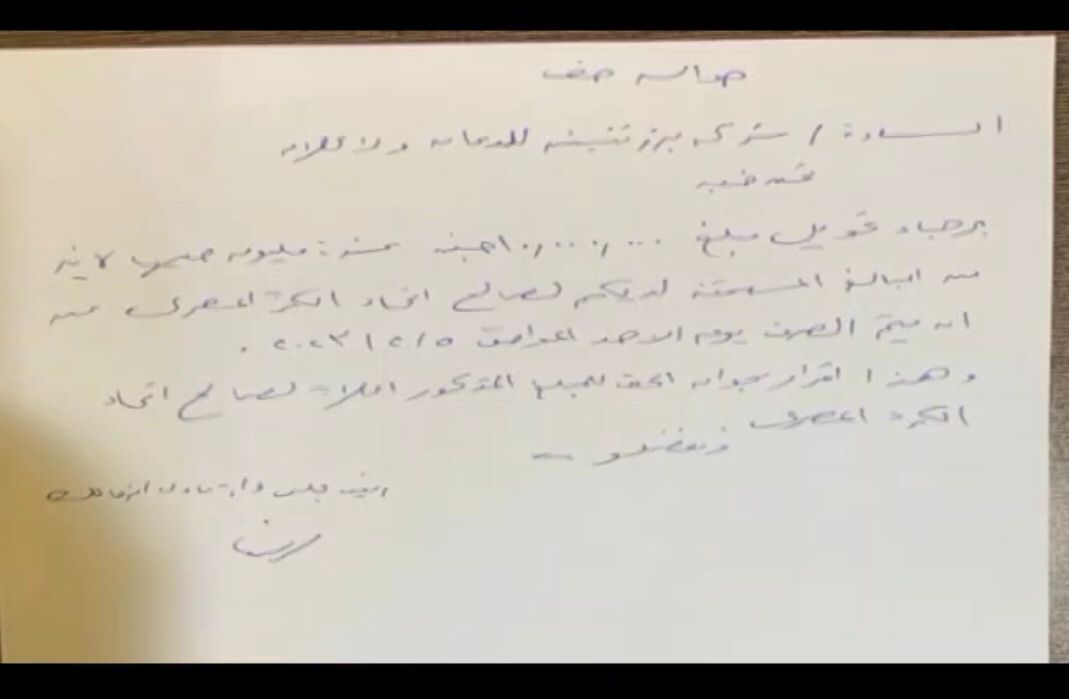 حوالة حق
السادة / شركة برزنتيشن للدعاية والاعلان
تحية طيبة
برجاء تحويل مبلغ ١٠,٠٠٠,٠٠٠ جنيه عشرة مليون جنيها لاغير
من المبالغ المستحقة لديكم لصالح اتحاد الكرة المصرى على
ان يتم الصرف يوم الاحد الموافق ٢٠٢٣/٢/٥ .
وهذا اقرار بحوالة الحق للمبلغ المذكور اعلاه لصالح اتحاد
الكرة المصرى
وتفضلوا
رئيس مجلس إدارة نادى الزمالك